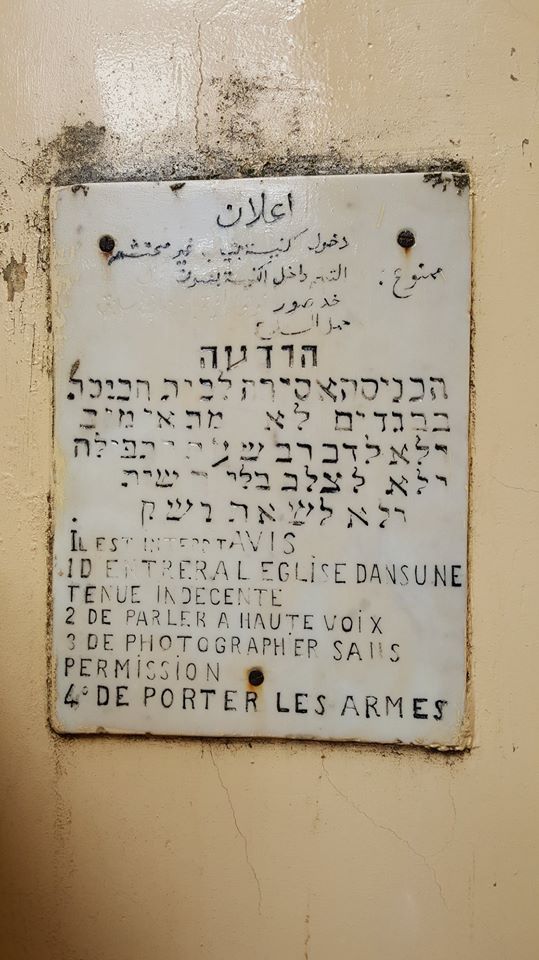 اعلان
دخول كنيسة بثياب غير محتشم
ممنوع: التكلم داخل الكنيسة بصوت
خد صور
حمل السلاح
הודעה
הכניסה אסירה לבית הכנסת
בבגדים לא מתאימים
ולא לדבר ב התפילה
ולא לצלם בלי רשית
ולא לשאת נשק
AVIS
IL EST INTERDIT
1 D ENTRER A L EGLISE DANS UNE
TENUE INDECENTE
2 DE PARLER A HAUTE VOIX
3 DE PHOTOGRAPHIER SANS
PERMISSION
4° DE PORTER LES ARMES